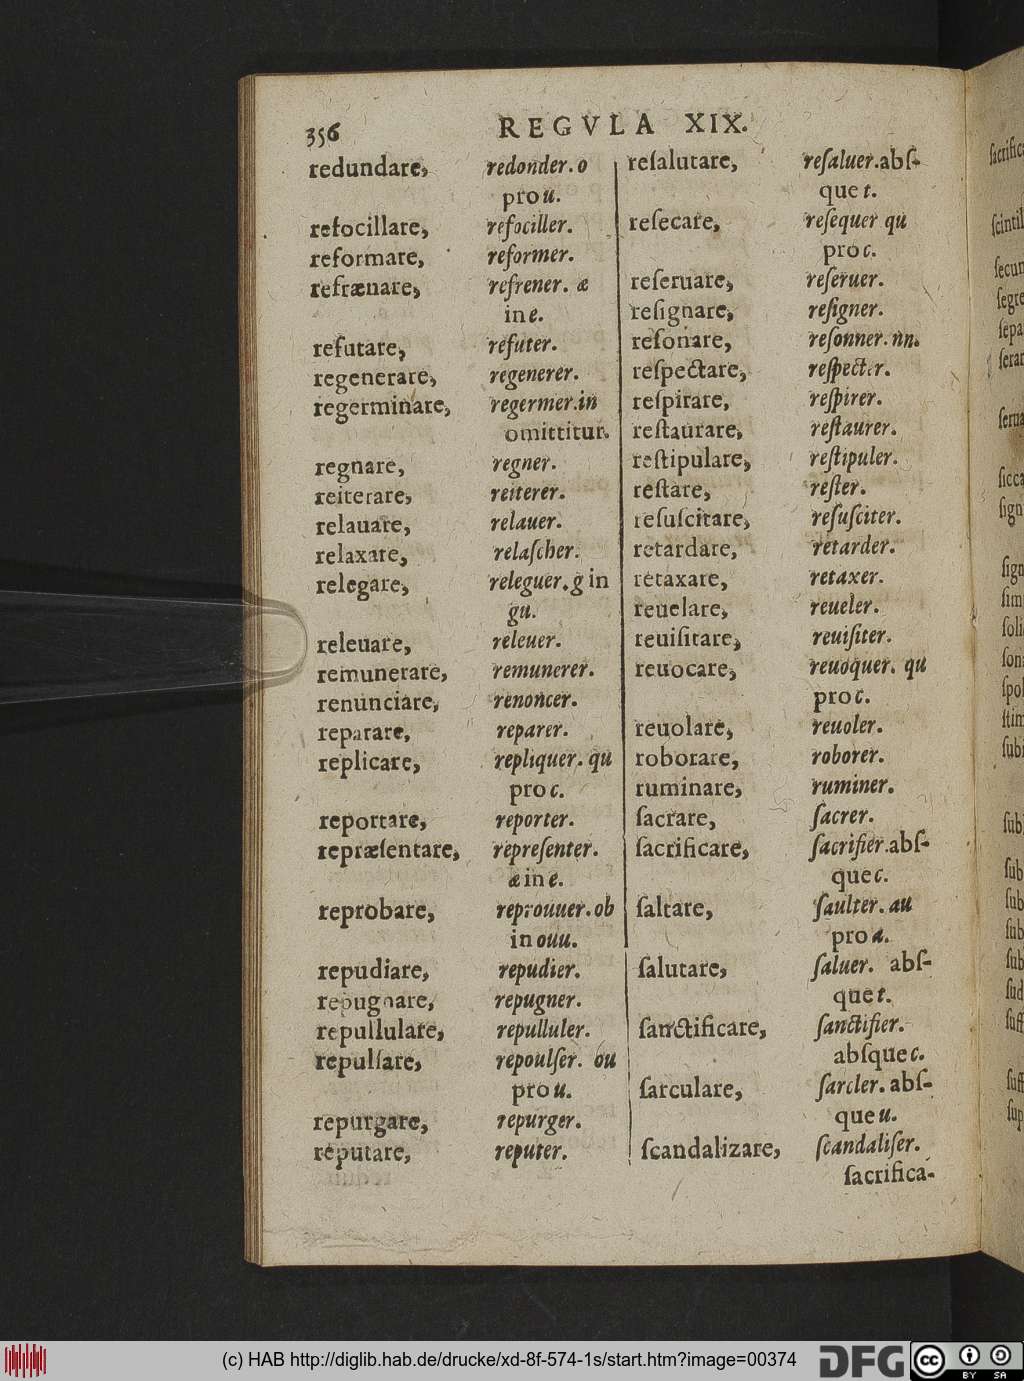 356 REGVLA XIX.
redundare, redonder. o
pro u.
refocillare, refociller.
reformare, reformer.
refrænare, refrener. æ
in e.
refutare, refuter.
regenerare, regenerer.
regerminare, regermer.in
omittitur.
regnare, regner.
reiterare, reiterer.
relauare, relauer.
relaxare, relaſcher.
relegare, releguer.g in
gu.
releuare, releuer.
remunerare, remunerer.
renunciare, renoncer.
reparare, reparer.
replicare, repliquer. qu
pro c.
reportare, reporter.
repræſentare, repreſenter.
æ in e.
reprobare, reprouuer.ob
in ouu.
repudiare, repudier.
repugnare, repugner.
repullulare, repulluler.
repulſare, repoulſer. ou
pro u.
repurgare, repurger.
reputare, reputer.
reſalutare, reſaluer.abſ-
que t.
reſecare, reſequer qu
pro c.
reſeruare, reſeruer.
reſignare, reſigner.
reſonare, reſonner. nn.
reſpectare, reſpecter.
reſpirare, reſpirer.
reſtaurare, reſtaurer.
reſtipulare, reſtipuler.
reſtare, reſter.
reſuſcitare, reſuſciter.
retardare, retarder.
retaxare, retaxer.
reuelare, reueler.
reuiſitare, reuiſiter.
reuocare, reuoquer. qu
pro c.
reuolare, reuoler.
roborare, roborer.
ruminare, ruminer.
ſacrare, ſacrer.
ſacrificare, ſacrifier.abſ-
que c.
ſaltare, ſaulter. au
pro a.
ſalutare, ſaluer. abſ-
que t.
ſanctificare, ſanctifier.
abſque c.
ſarculare, ſarcler. abſ-
que u.
ſcandalizare, ſcandaliſer.
ſacrifica-
(c) HAB http://diglib.hab.de/drucke/xd-8f-574-1s/start.htm?image=00374
DFG
cc BY SA